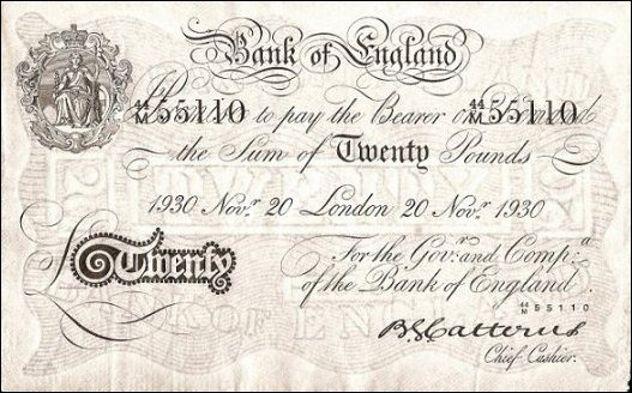 Bank of England
44/M 55110 to pay the Bearer on 44/M 55110
the Sum of Twenty Pounds
1930 Novr. 20 London 20 Novr. 1930
For the Govr. and Compa.
Twenty
of the Bank of England.
44/M 55110
B G Catterns
Chief Cashier.